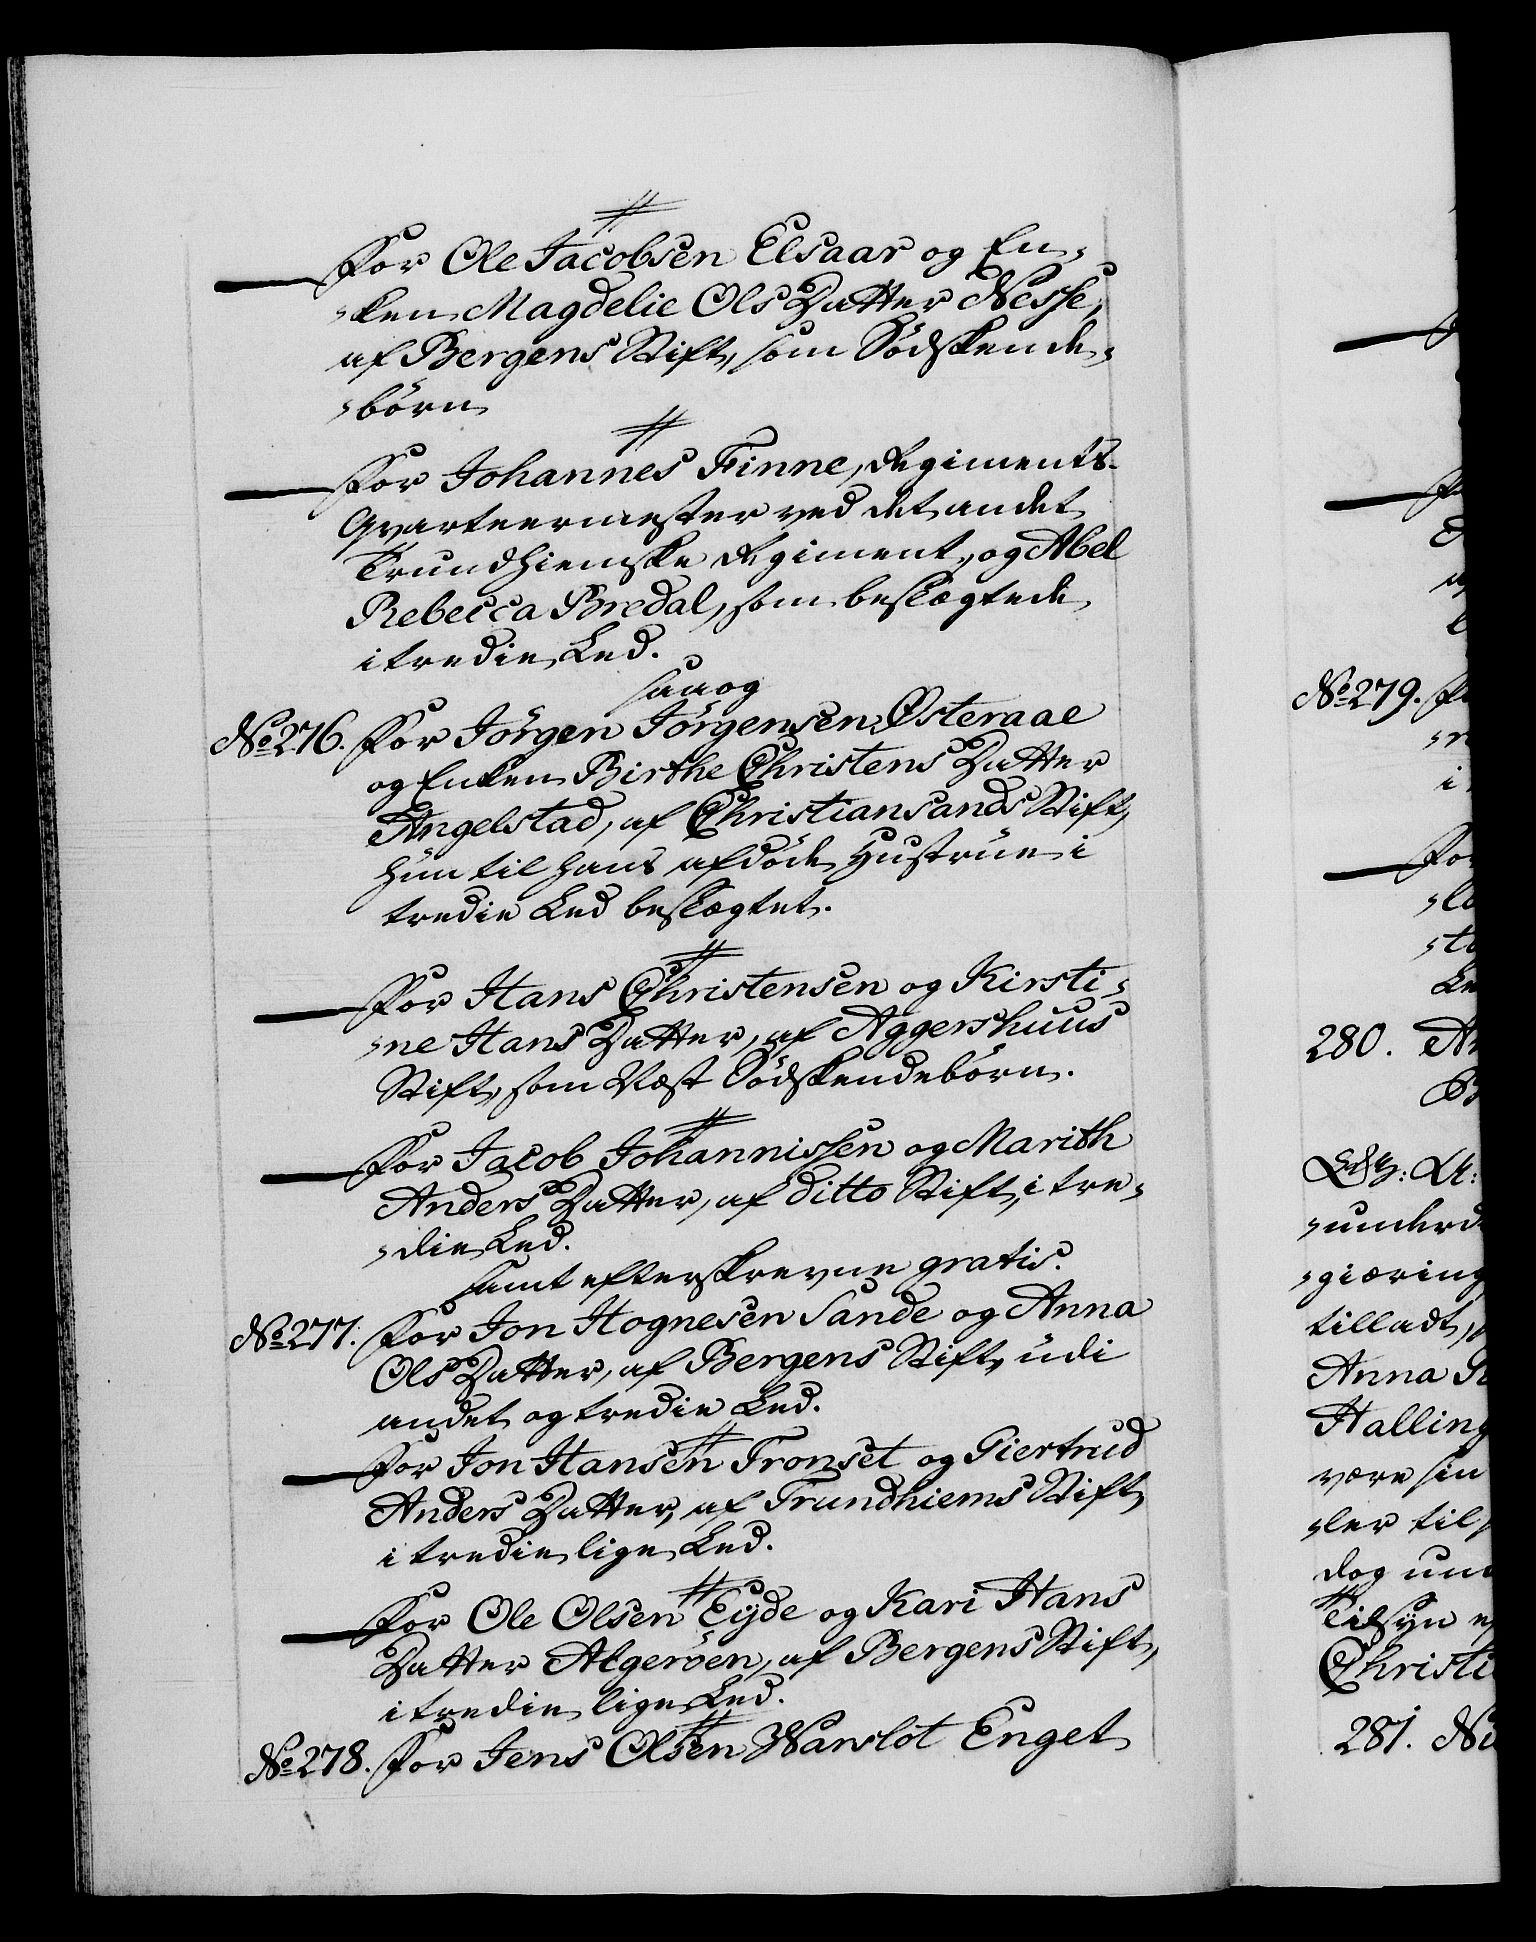 For Ole Jacobsen Elsaar og En-
-ken Magdelie Ols Datter Nesse,
af Bergens Stift, som Södskende-
-börn
For Johannes Finne, Regiments-
Qvarteermester ved det andet
Trundhiemske Regiment, og Abel
Rebecca Bredal, som beslægtede
i tredie Led.
saa og
No 276. For Jörgen Jörgensen Østeraae
og Enken Birthe Christens Datter
Angelstad, af Christiansands Stift,
hun til hans afdöde Hustrue i
tredie Led beslægtet.
For Hans Christensen og Kirsti-
-ne Hans Datter, af Aggershuus
Stift, som Næst Södskendebörn.
For Jacob Johannissen og Marith
Anders Datter, af ditto Stift, i tre-
-die Led.
samt efterskrevne gratis.
No 277. For Jon Hognesen Sande og Anna
Ols Datter, af Bergens Stift, udi
andet og tredie Led.
For Jon Hansen Tronset og Giertrud
Anders Datter, af Trundhiems Stift
i tredie lige Led.
For Ole Olsen Eyde og Kari Hans
Datter Algeröen, af Bergens Stift,
i tredie lige Led.
No 278. For Jens Olsen Warslot Enget
No 279.
280.
-underd
-giæring
tilladt,
Anna
Halling
være sin
-ler til
dog und
Tilsyn
Christi
281.